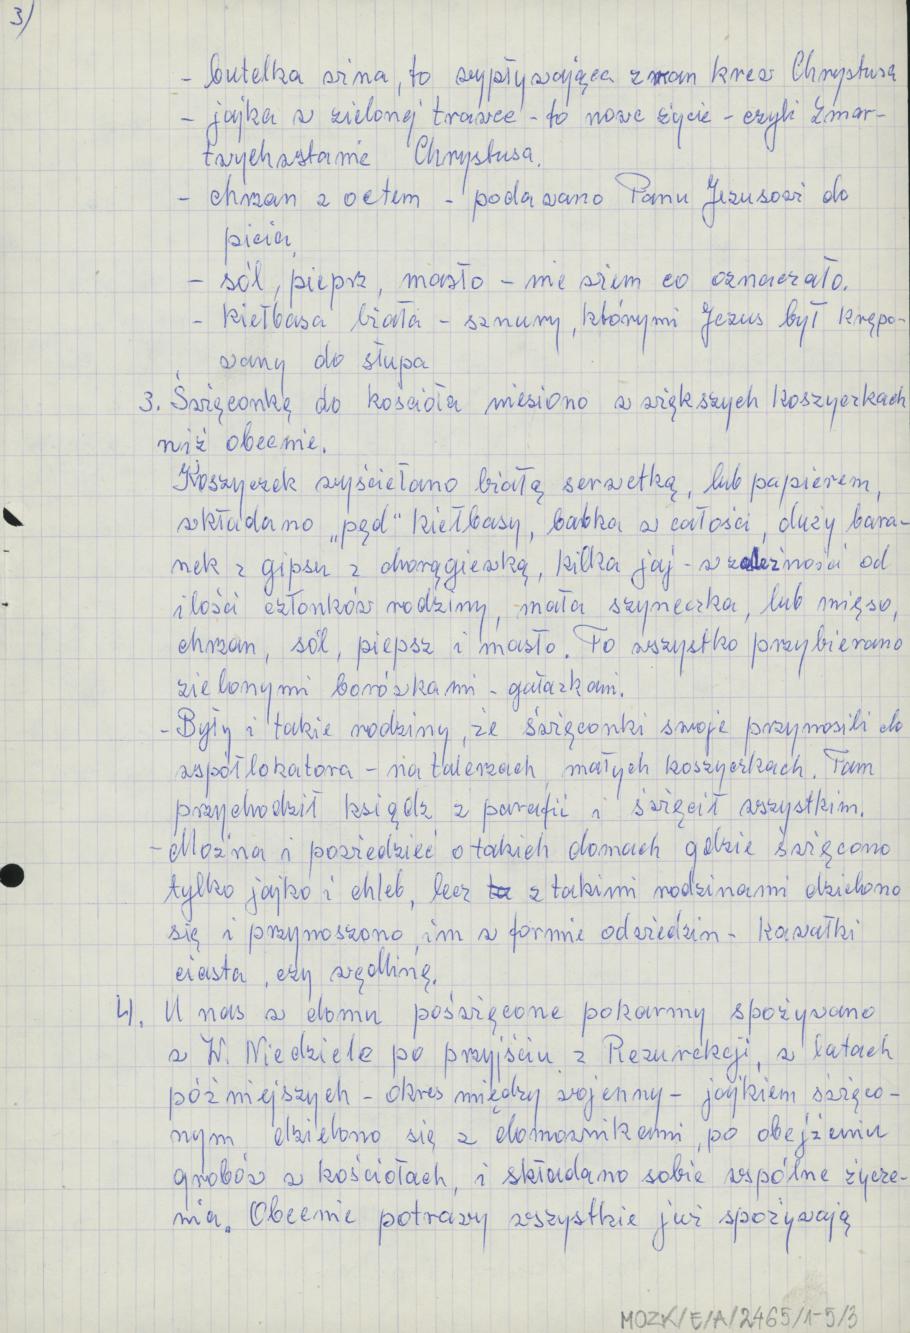 3)
- butelka wina, to wypływająca z ran krew Chrystusa
- jajka w zielonej trawce - to nowe życie - czyli Zmar-
twychwstanie Chrystusa.
- chrzan z octem - podawano Panu Jezusowi do
picia.
- sól, pieprz, masło - nie wiem co oznaczało.
- kiełbasa biała - sznury, którymi Jezus był krępo-
wany do słupa
3. Święconkę do kościoła niesiono w większych koszyczkach
niż obecnie.
Koszyczek wyściełano białą serwetką, lub papierem,
wkładano „pęd" kiełbasy, babka w całości, duży bara-
nek z gipsu z chorągiewką, kilka jaj - w zależności od
ilości członków rodziny, mała szyneczka, lub mięso,
chrzan, sól, piepsz i masło. To wszystko przybierano
zielonymi borówkami - gałązkami.
- Były i takie rodziny, że święconki swoje przynosili do
współlokatora - na talerzach, małych koszyczkach. Tam
przychodził ksiądz z parafii i święcił wszystkim.
- Można i powiedzieć o takich domach gdzie święcono
tylko jajko i chleb, lecz z takimi rodzinami dzielono
się i przynoszono im w formie odwiedzin - kawałki
ciasta, czy wędlinę.
4. U nas w domu poświęcone pokarmy spożywano
w W. Niedziele po przyjściu z Rezurekcji, w latach
póżniejszych - okres między wojenny - jajkiem święco-
nym dzielono się z domownikami, po obejżeniu
grobów w kościołach, i składano sobie wspólne życze-
nia. Obecnie potrawy wszystkie już spożywają
MOZK/E/A/2465/1-5/3